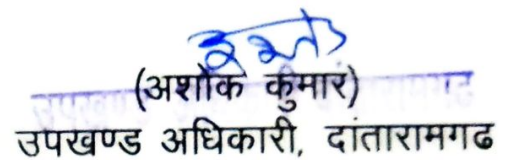 (अशोक कुमार)
उपखण्ड अधिकारी, दांतारामगढ